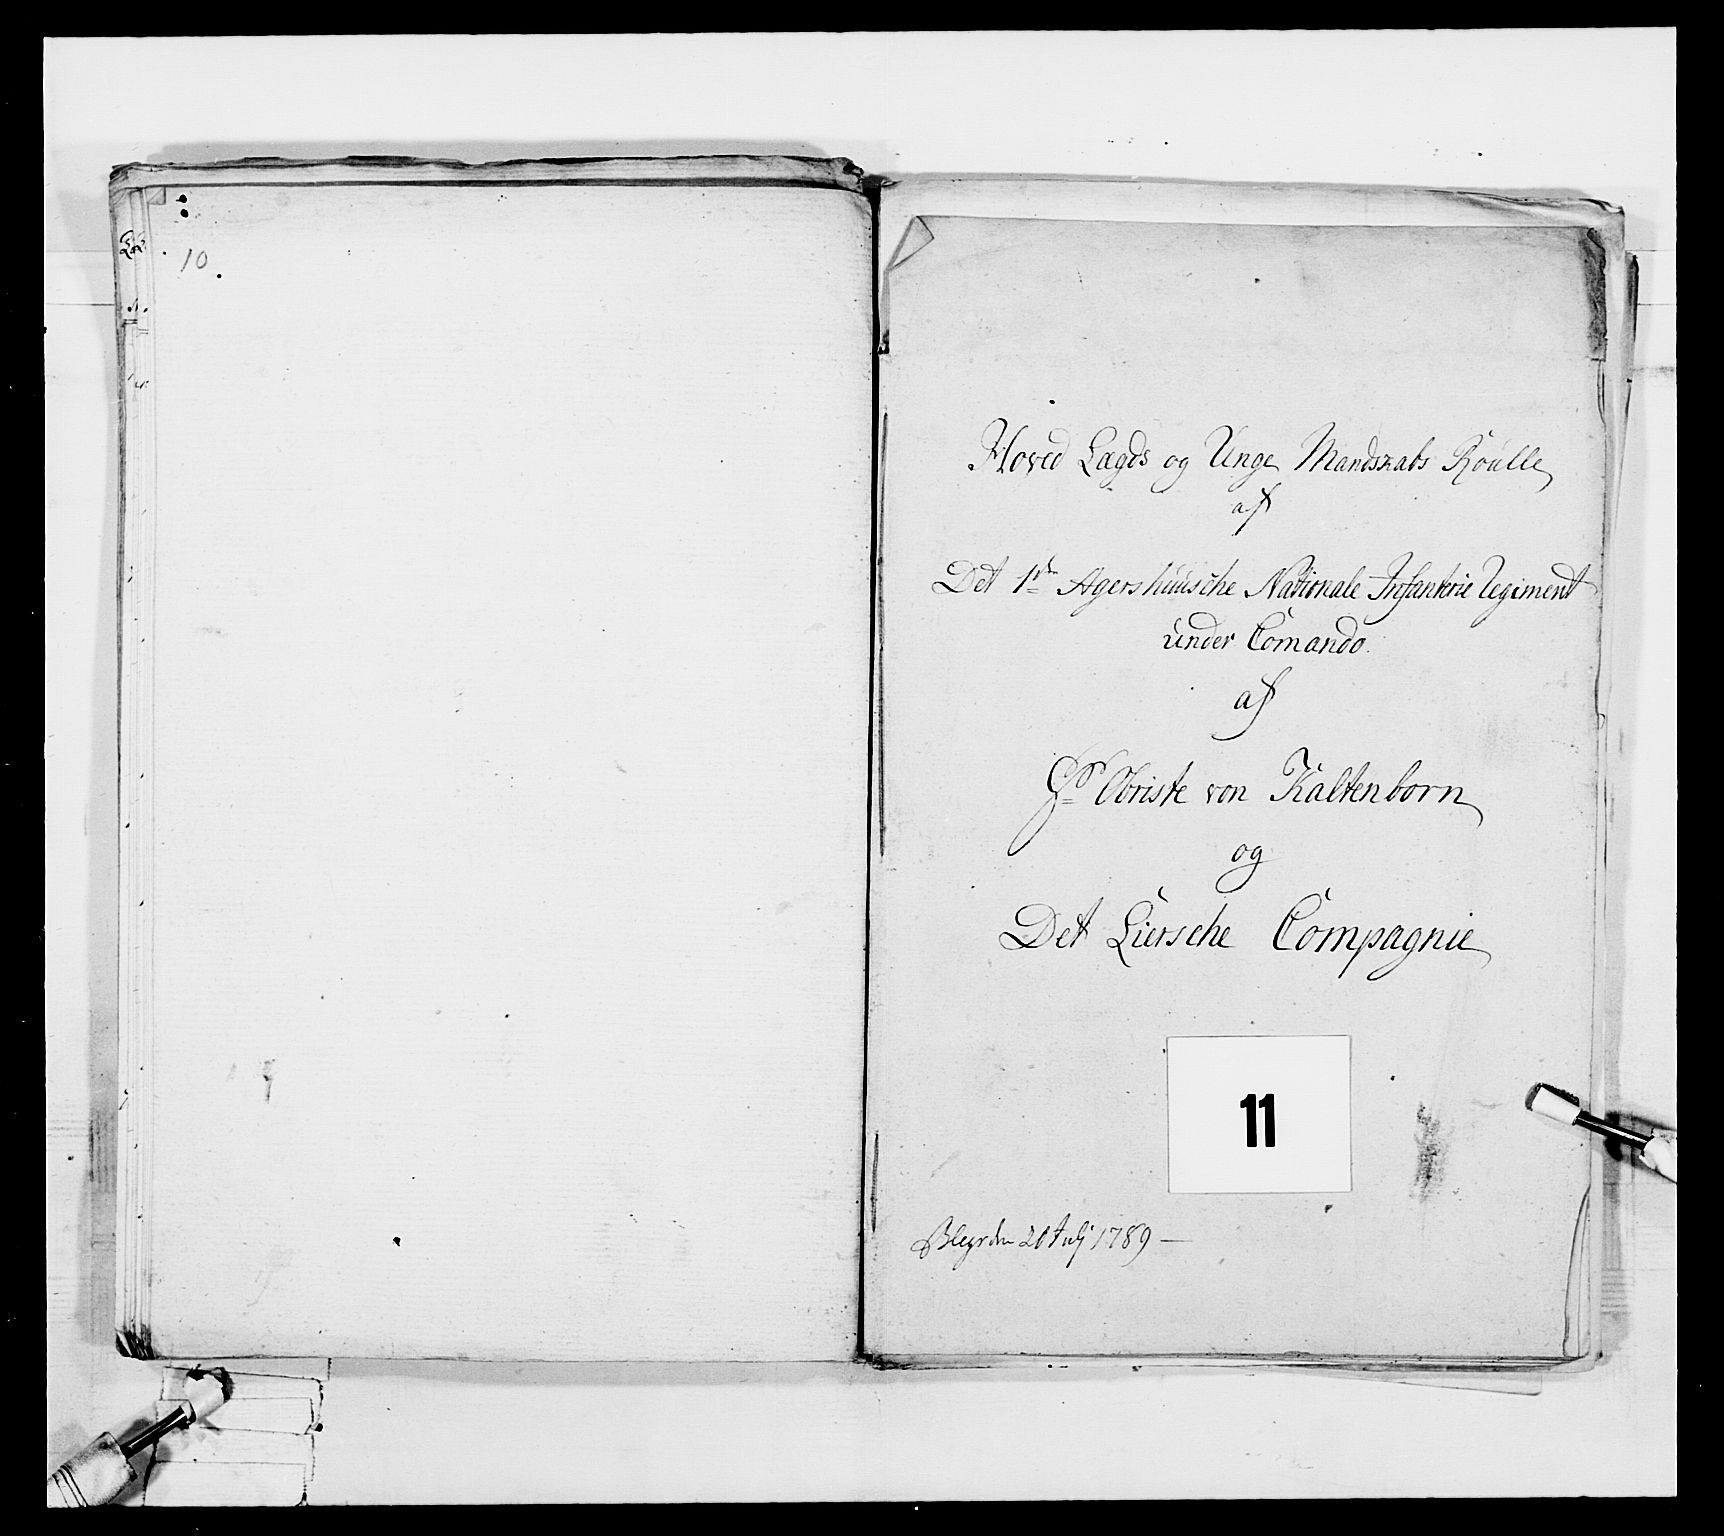 10
Hoved Lægds og Unge Mandskabs Roulle
af
Det 1ste Agershuusche Nationale Infanterie Regiment
under Comando
af
Hr Obriste von Kaltenborn
og
Det Liersche Compagnie
11
den 20 Julj 1789